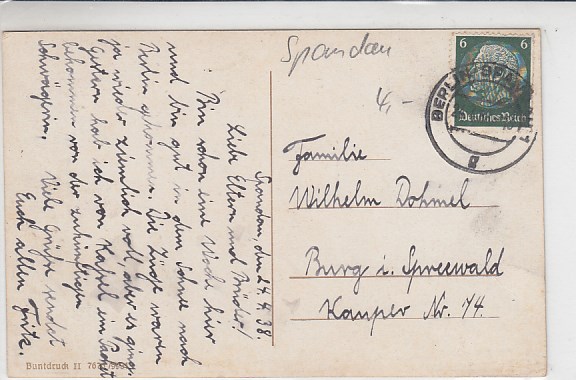 Spandau
4,-
6 6
Deutsches Reich
BERLIN-SPAN
g
Familie
Wilhelm Dohmel
Burg i. Spreewald
Kauper Nr. 74.
Spandau, den 24. 4. 38.
Liebe Eltern und Brüder!
Bin schon eine Woche hier
und bin gut in dem Sonne nach
Berlin gekommen. Die Züge waren
ja wieder ziemlich voll, aber es ging.
Gestern hab ich von Kassel ein
bekommen von der zukünftigen
Schwägerin. Viele Grüße sendet
Euch allen Fritz.
Buntdruck II